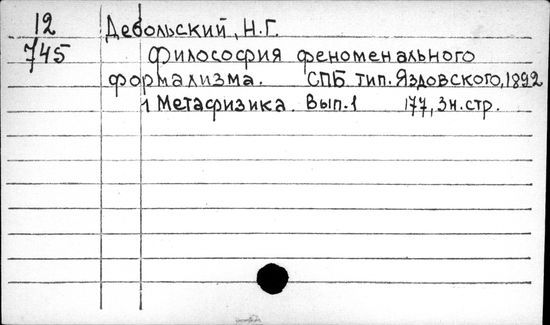 12 Дебольский, Н.Г.
745 Философия феноменального
формализма. СПБ тип. Яздовского, 1892
1 Метафизика. Вып. 1 177, 3 н. стр.